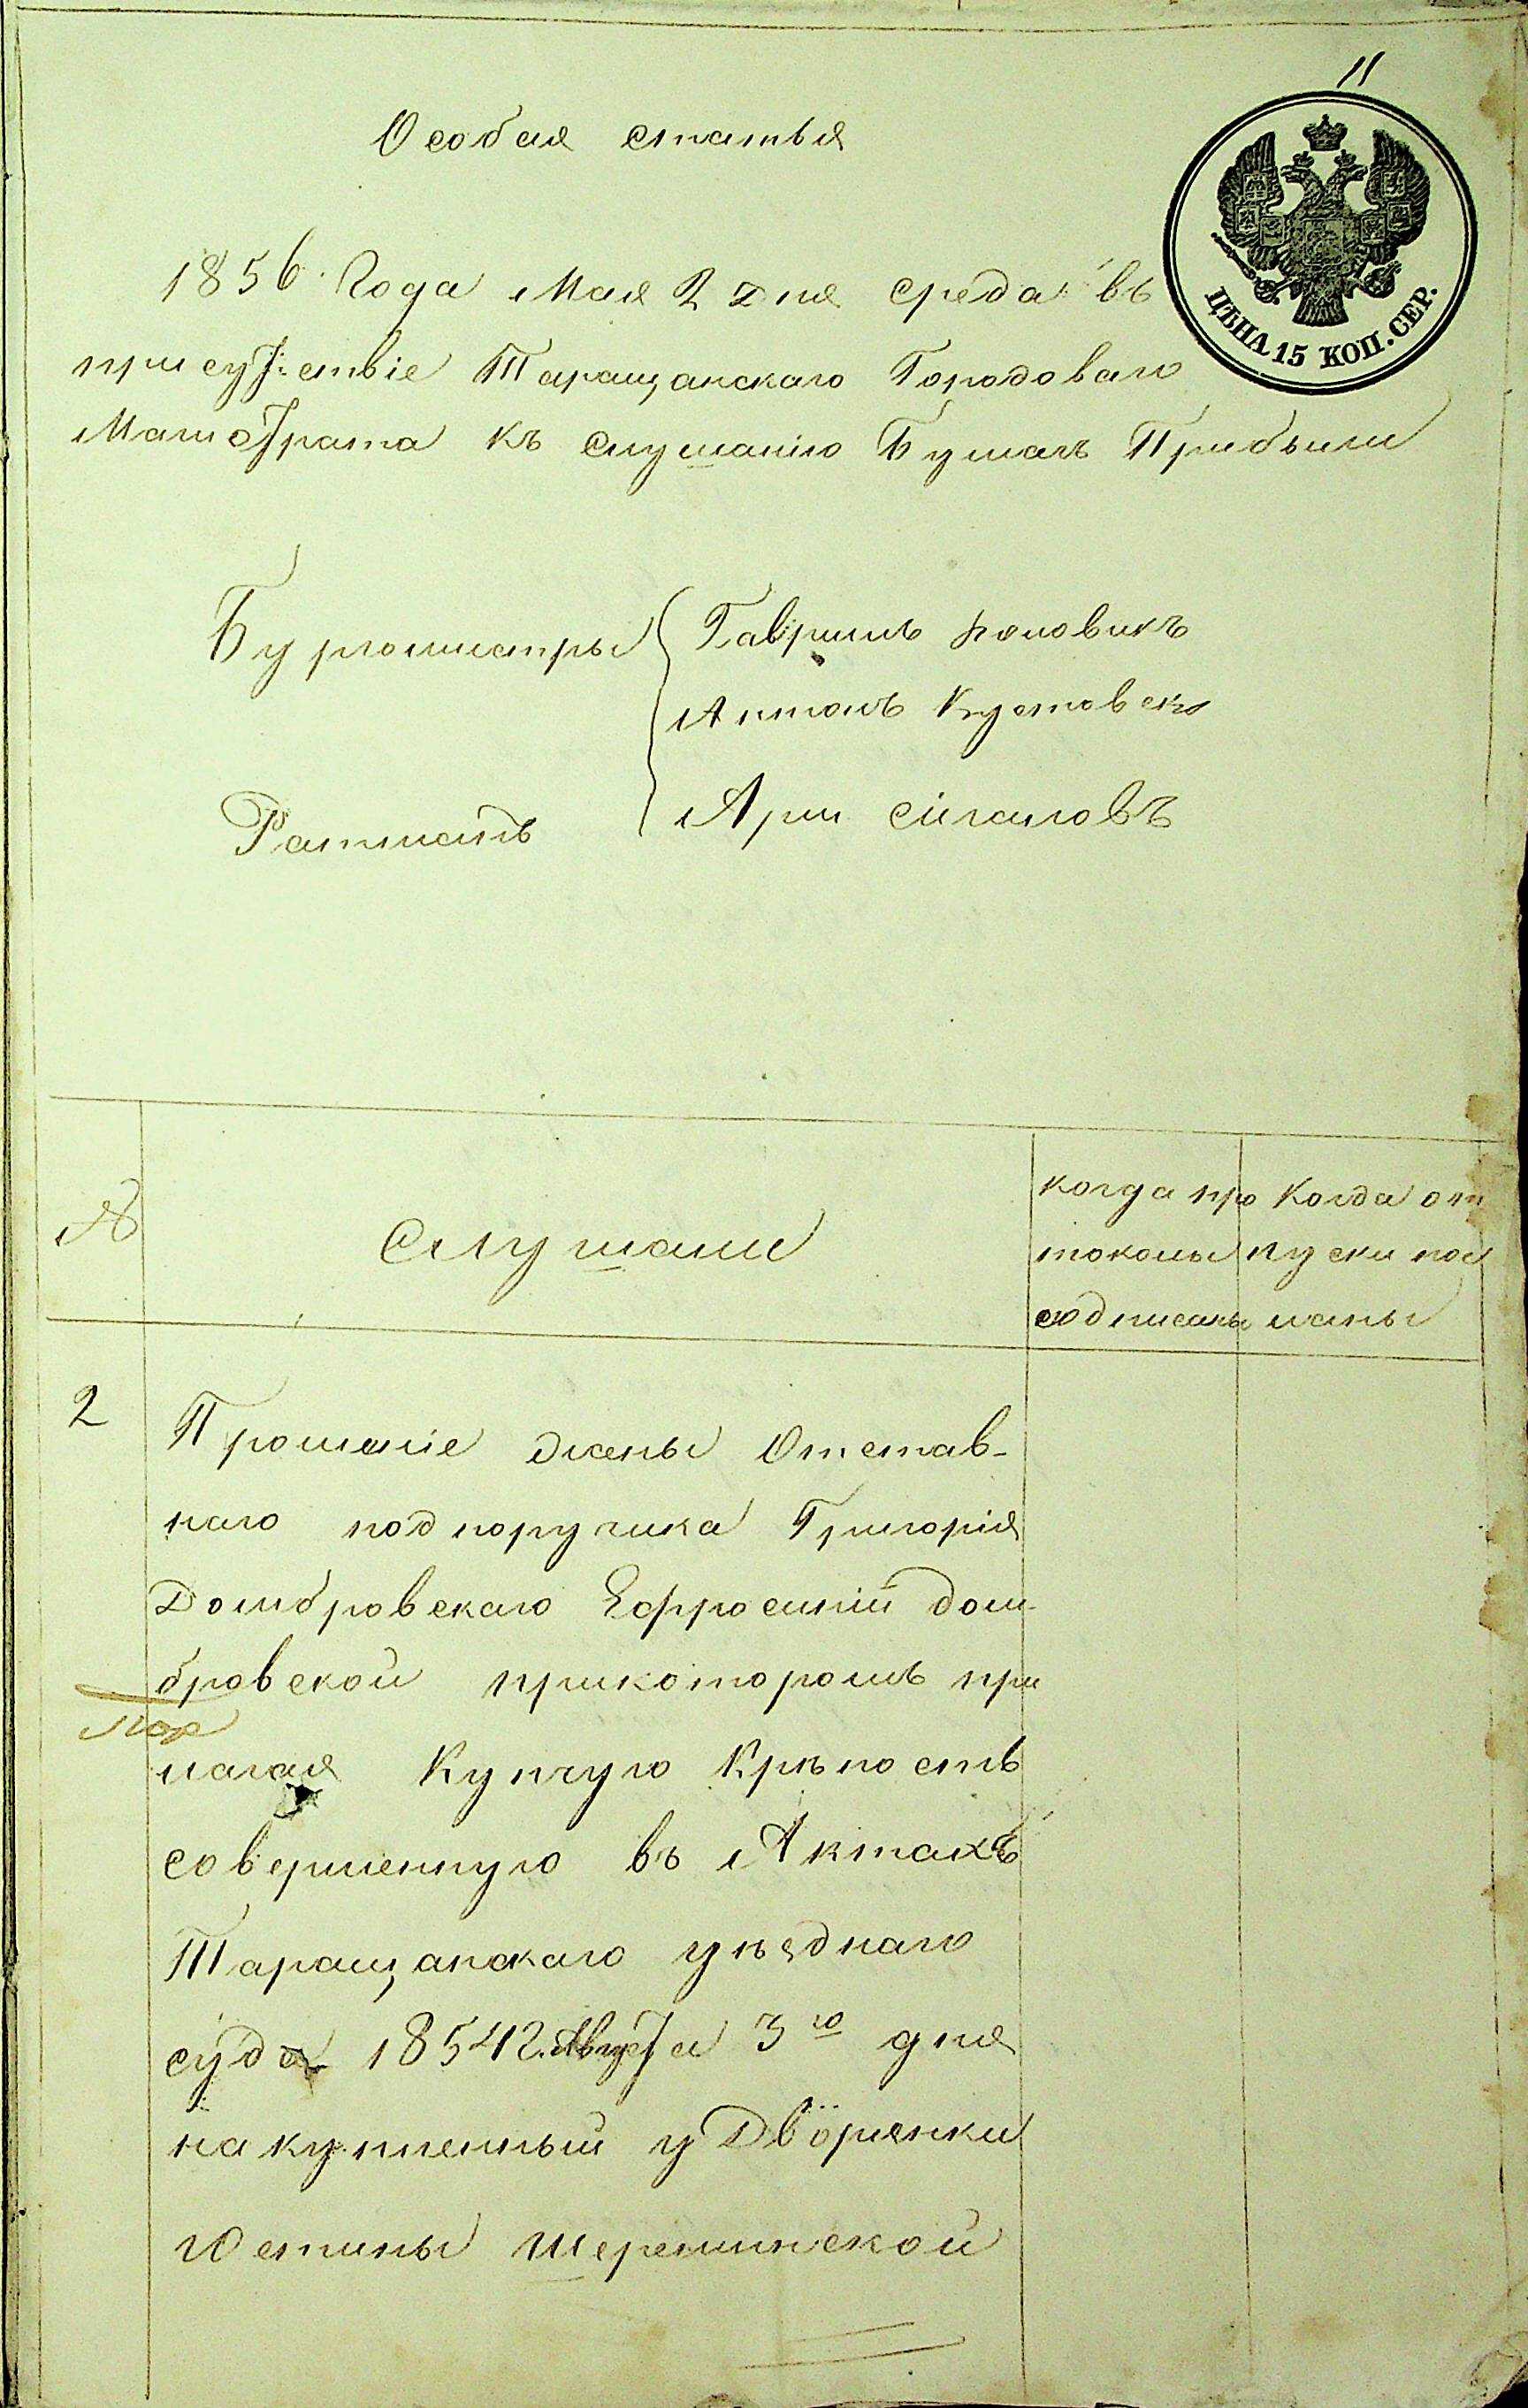 11
Особая статья
ЦѢНА 15 КОП. СЕР.
1856 Года Мая 2 дня среда въ
присутствіе Таращанскаго Городоваго
Магистрата къ слушанію Бумагъ Прибыли
Бургомистры Гавріилъ
Антонъ
Ратманъ Арiи Сигаловъ
№
Слушали
когда про
токолы
подписаны
Когда от
пуски пос
ланы
2
Прошеніе жены Отстав-
наго подпоручика Григорія
Домбровскаго Ефросиніи Дом-
бровской прикоторомъ при
лагая Купчую Крѣпость
совершенную въ Актахъ
Таращанскаго уѣзднаго
суда 1854 г. Августа 3го дня
на купленный у Дворянки
Юстины Шереминской